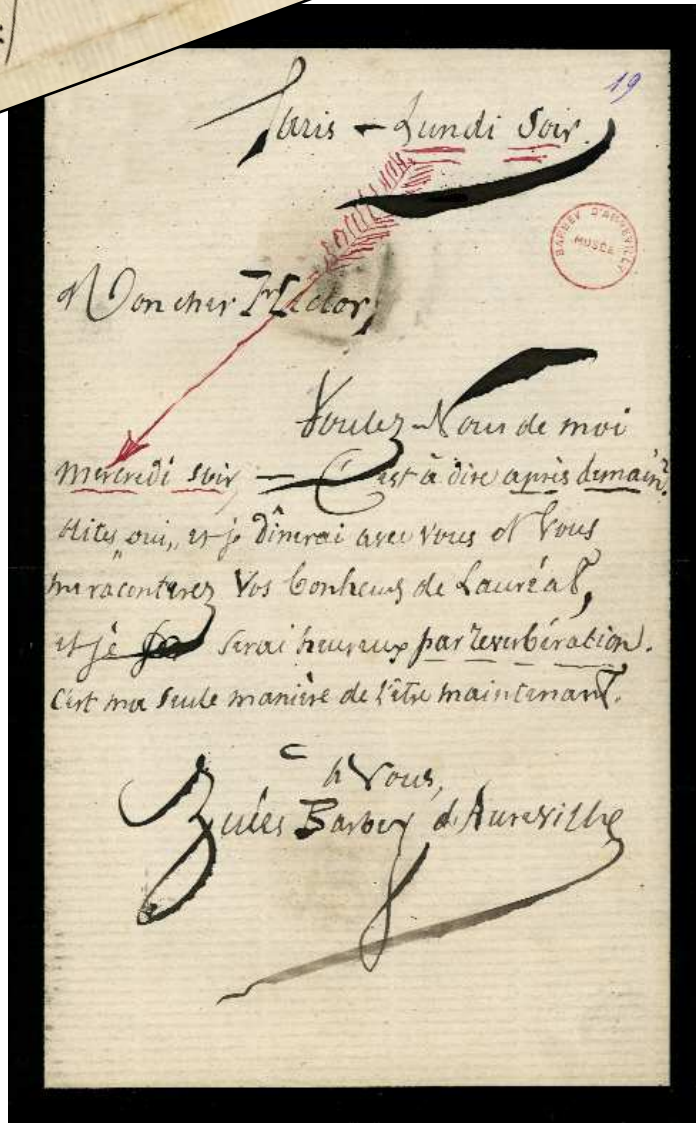 19
Paris – Lundi Soir.
BARBEY D'AUREVILLY
MUSÉE
Mon cher Hector,
Voulez-Vous de moi
mercredi soir, – C'est à dire après demain?
dites „oui„, et je dînerai avec vous et Vous
me raconterez Vos bonheurs de Lauréat,
et je serai heureux par réverbération.
C'est ma seule manière de l'être maintenant.
à Vous,
Jules Barbey d'Aurevilly